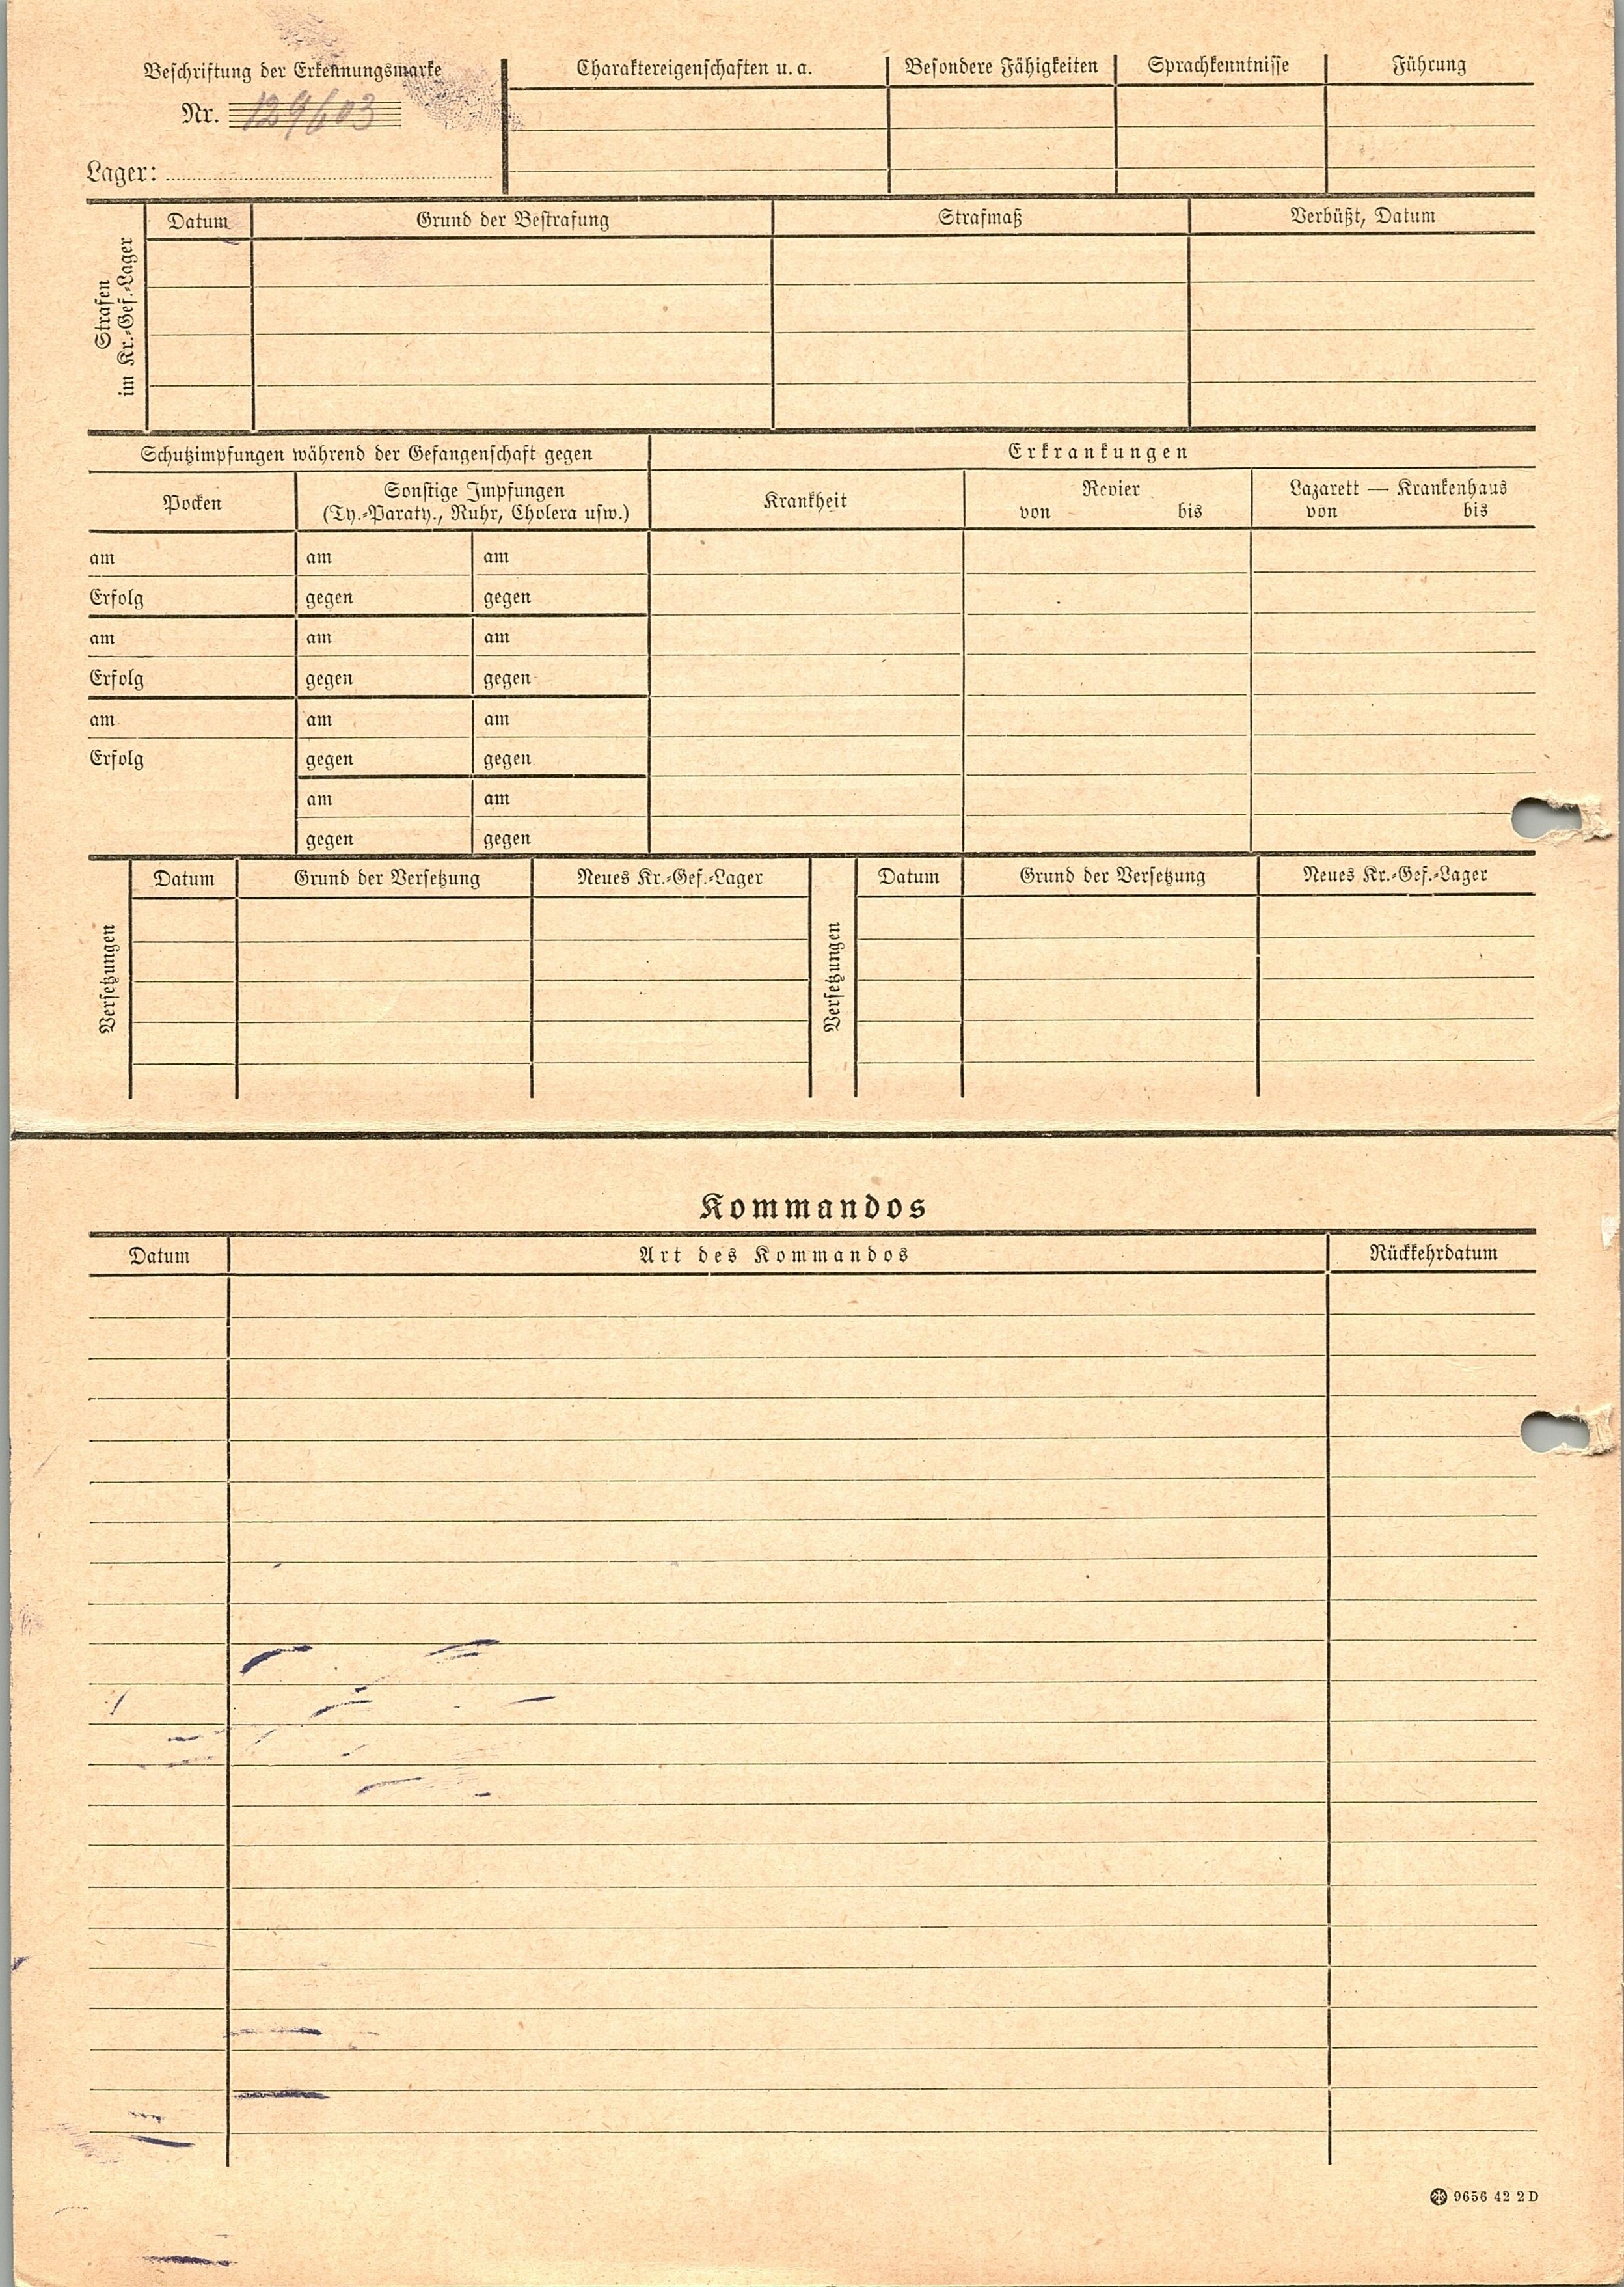 Beschriftung der Erkennungsmarke
Nr. 129603
Lager:
Charaktereigenschaften u. a.
Besondere Fähigkeiten
Sprachkenntnisse
Führung
Strafen
im Kr.-Gef.-Lager
Datum
Grund der Bestrafung
Strafmaß
Verbüßt, Datum
Schutzimpfungen während der Gefangenschaft gegen
Erkrankungen
Pocken
Sonstige Impfungen
(Ty.-Paraty., Ruhr, Cholera usw.)
Krankheit
Revier
von bis
Lazarett — Krankenhaus
von bis
am am am
Erfolg gegen gegen
am am am
Erfolg gegen gegen
am am am
Erfolg gegen gegen
am am
gegen gegen
Versetzungen
Datum
Grund der Versetzung
Neues Kr.-Gef.-Lager
Versetzungen
Datum
Grund der Versetzung
Neues Kr.-Gef.-Lager
Kommandos
Datum
Art des Kommandos
Rückkehrdatum
9656 42 2 D